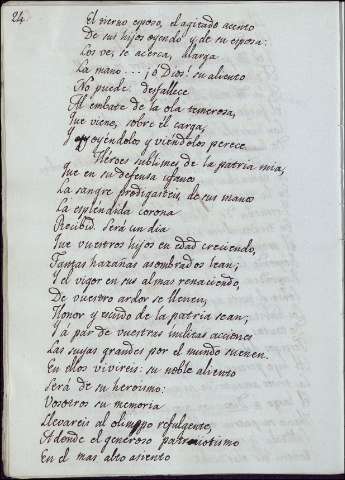 24.
El tierno esposo, el agitado acento
De sus hijos oyendo y de su esposa:
Los ve, se acerca, alarga
La mano .... ¡o Dios! su aliento
No puede: desfallece
Al embate de la ola temerosa,
Que viene, sobre él carga,
Y oyéndolos y viéndolos perece.
Héroes sublimes de la patria mia,
Que en su defensa ufanos
La sangre prodigasteis, de sus manos
La espléndida corona
Recibid. Será un dia
Que vuestros hijos en edad creciendo,
Tantas hazañas asombrados lean;
Y el vigor en sus almas renaciendo,
De vuestro ardor se llenen,
Honor y escudo de la patria sean;
Y á par de vuestras ínclitas acciones
Las suyas grandes por el mundo suenen.
En ellos vivireis: su noble aliento
Será de su heroismo:
Vosotros su memoria
Llevareis al olimpo refulgente,
A donde el generoso patriotismo
En el mas alto asiento